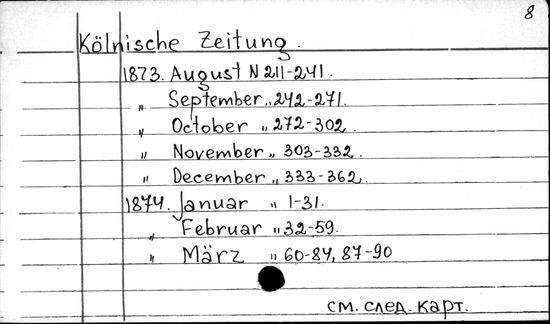 8
Kölnische Zeitung.
1873. August N 211-241.
„ September „ 242-271.
„ October „ 272-302
„ November „ 303-332.
„ December „ 333-362.
1874. Januar „ 1-31.
„ Februar „ 32-59.
„ März „ 60-84, 87-90
см. след. карт.